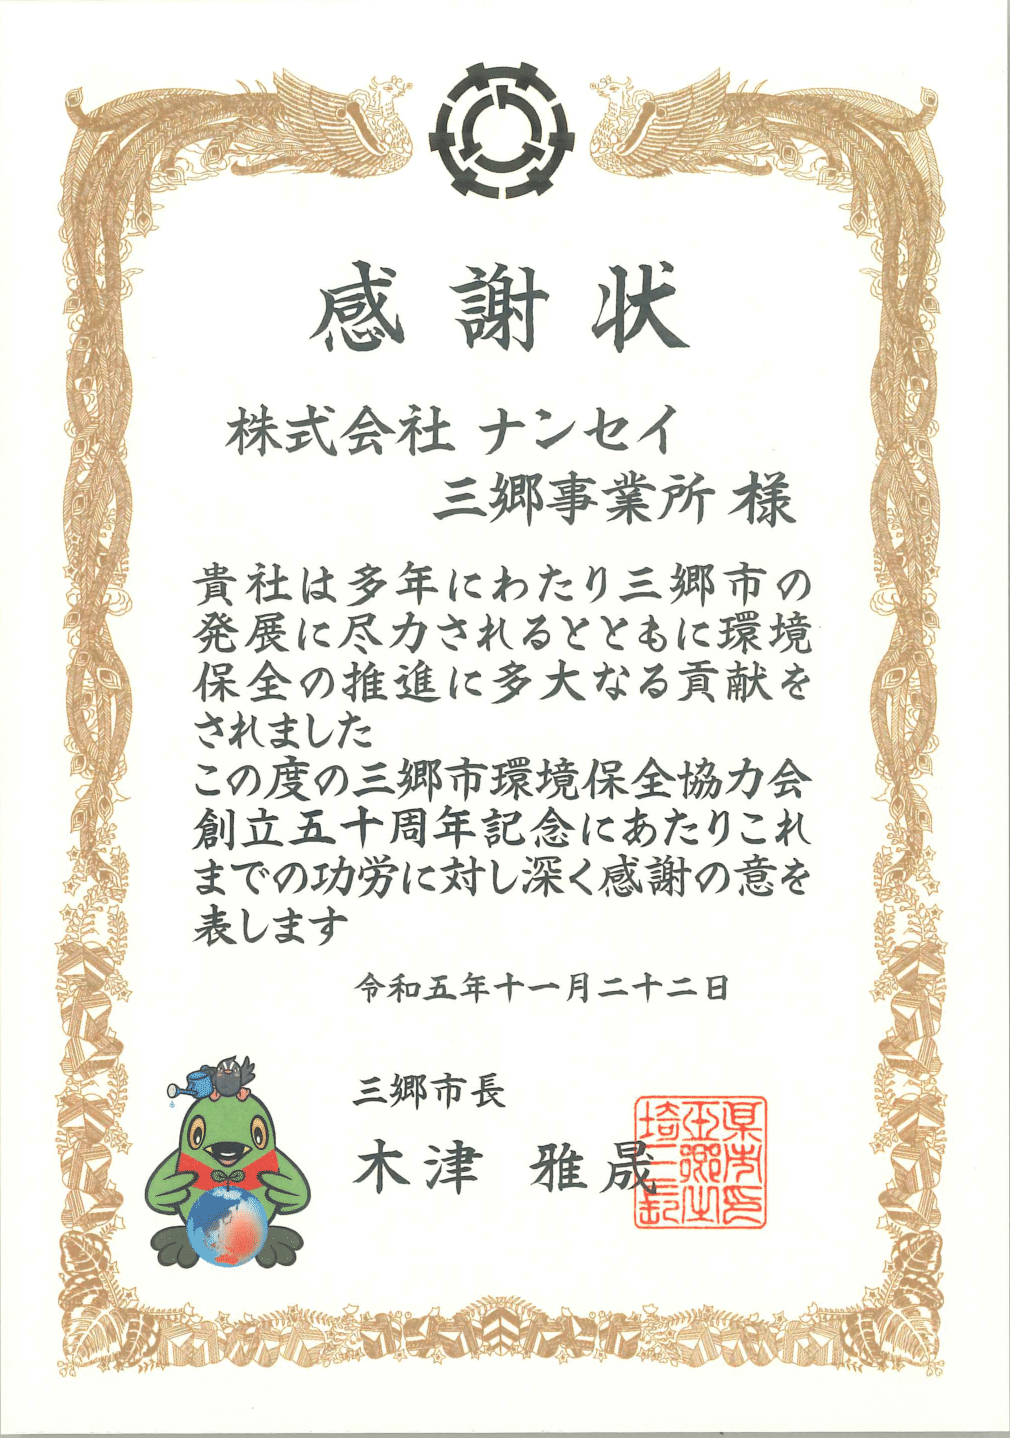 感謝状
株式会社 ナンセイ
三郷事業所 様
貴社は多年にわたり三郷市の
発展に尽力されるとともに環境
保全の推進に多大なる貢献を
されました
この度の三郷市環境保全協力会
創立五十周年記念にあたりこれ
までの功労に対し深く感謝の意を
表します
令和五年十一月二十二日
三郷市長
木津 雅晟